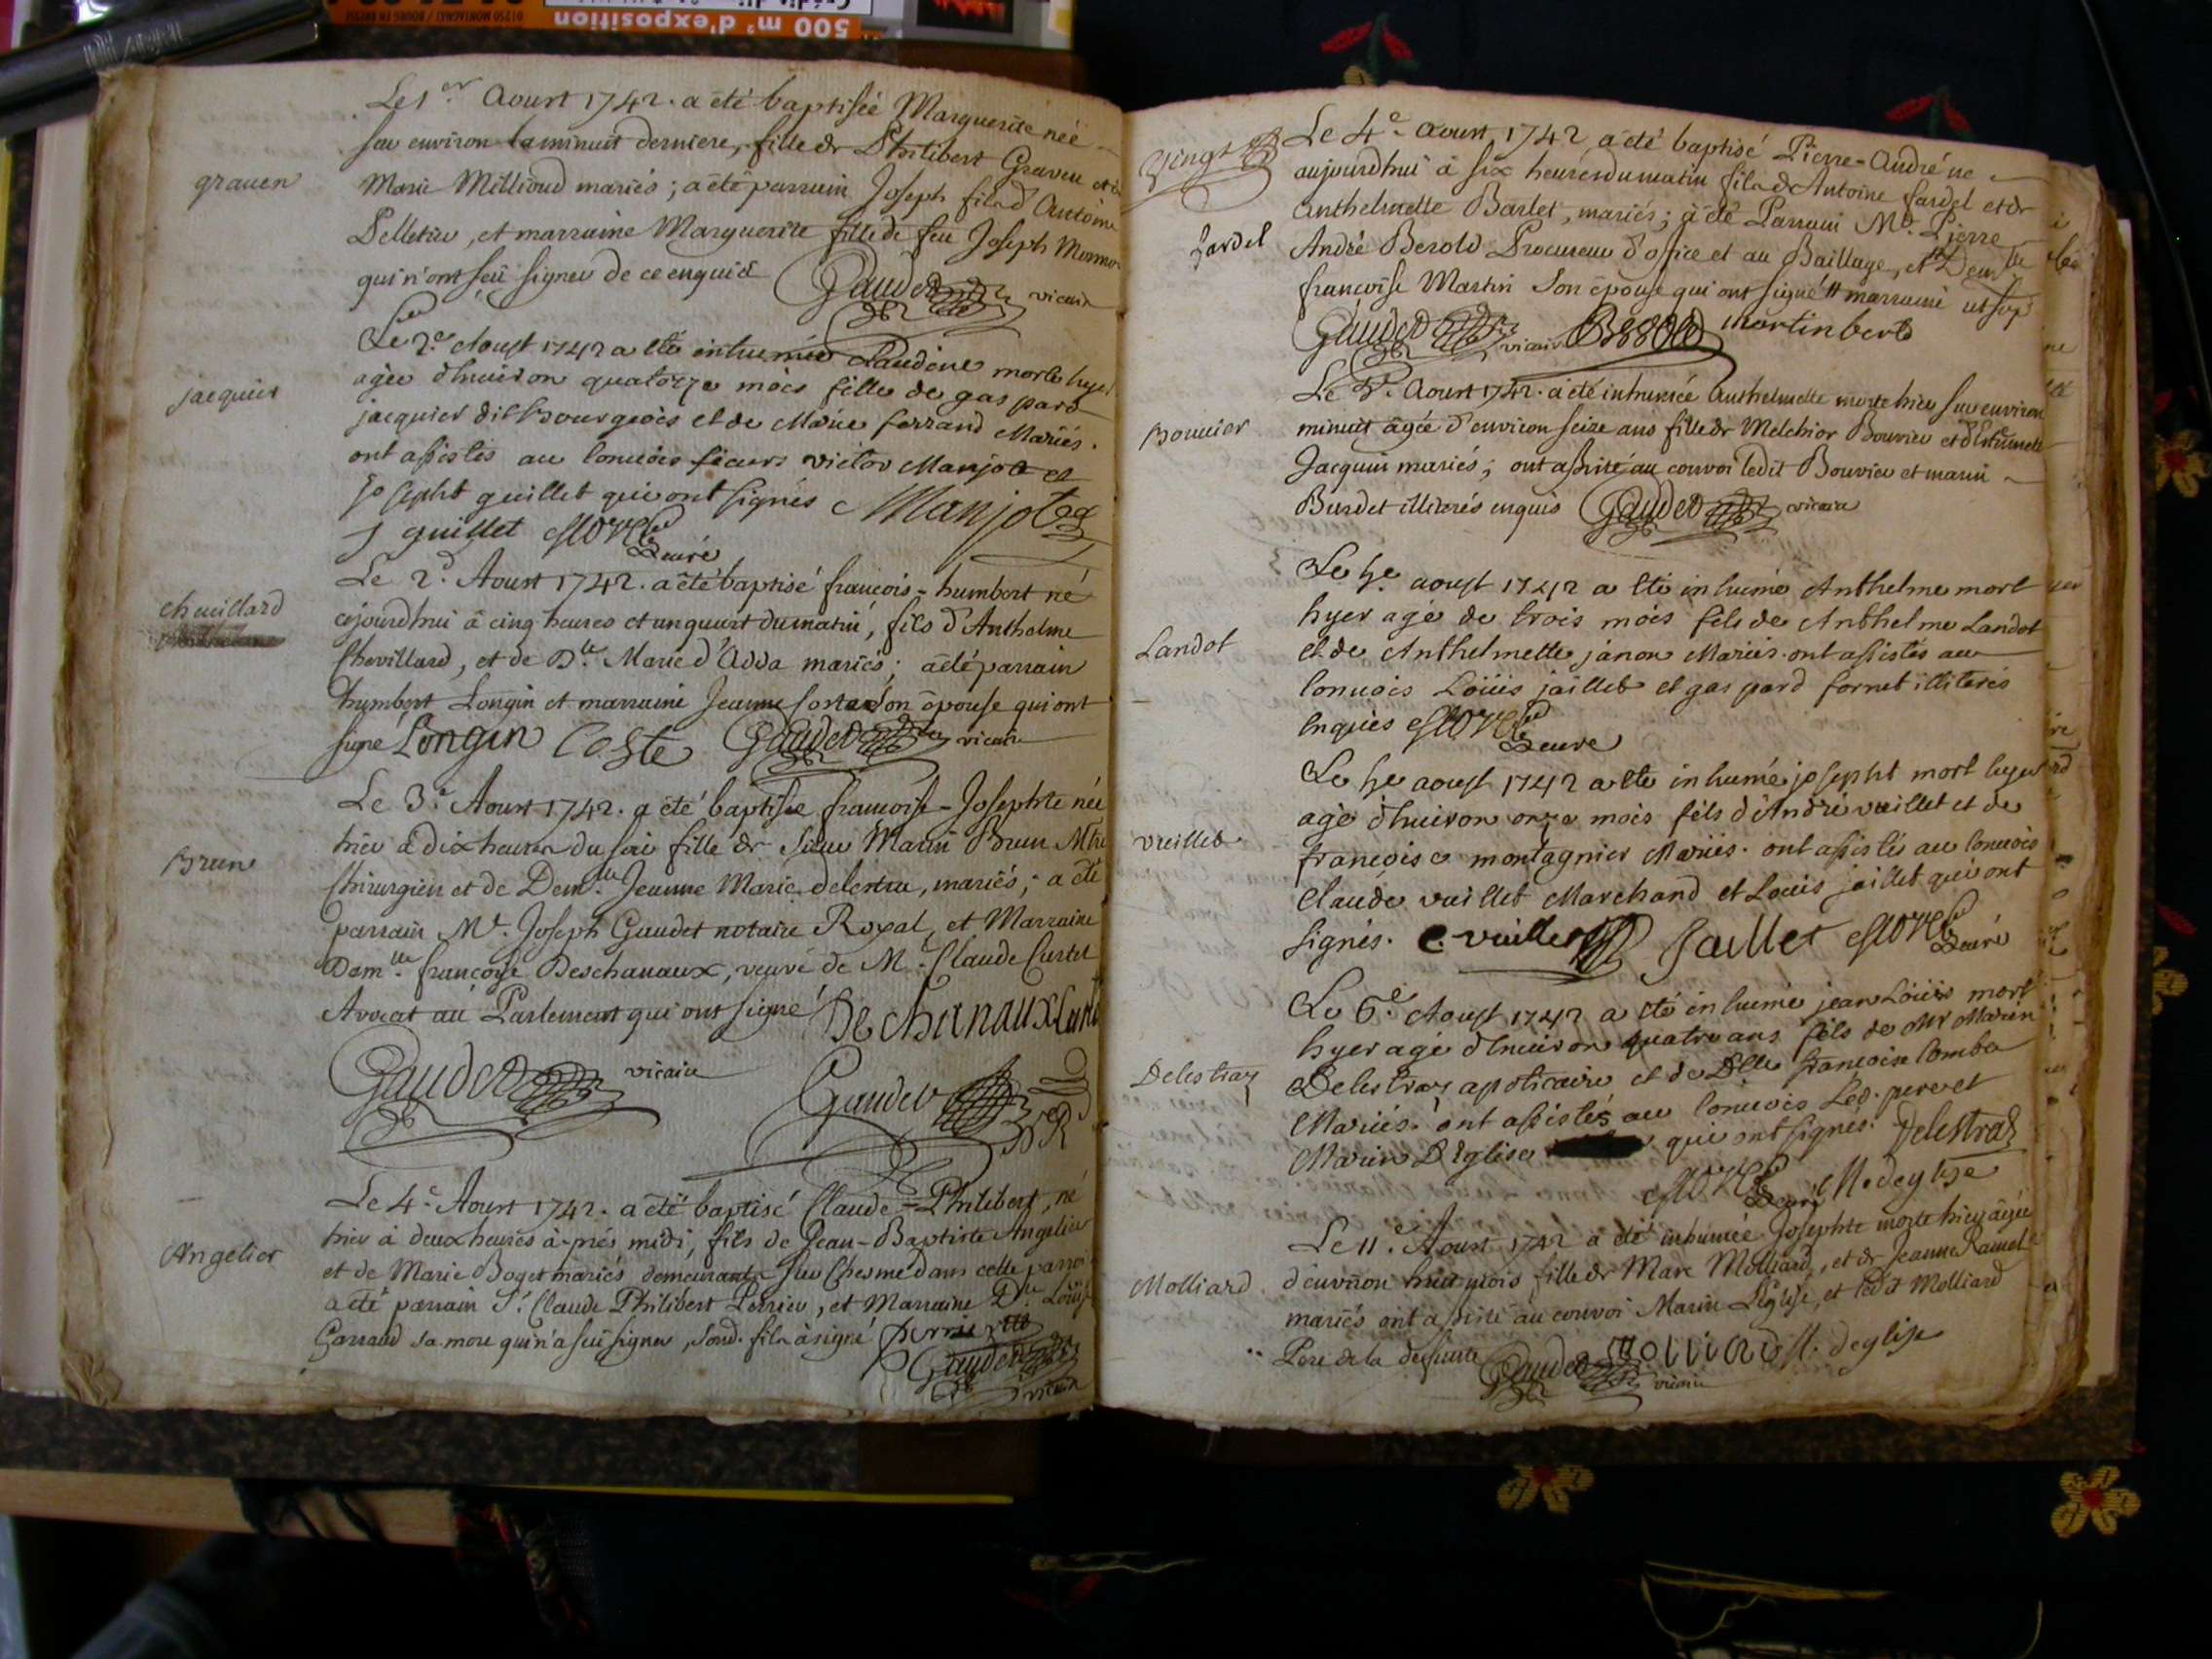 500 m² d'exposition
01250 MONTAGNAT / BOURG EN BRESSE
graven
Le 1er. Aoust 1742. a êtê baptisée Marguerite née
sur environ la minuit derniere, fille de Philibert Graven et de
Marie Millioud mariés; a êtê parrain Joseph fils d'Antoine
Pelletier, et marraine Marguerite fille de feu Joseph
qui n'ont sçû signer de ce enquis Gaudet vicaire
jacquier
Le 2e Aoust 1742 a esté inhumée Claudine morte hyer
agée d'huiron quatorze mois fille de gaspard
jacquier dit bourgeois et de Marie ferrand Mariés.
ont assistés au convois sieurs victor Manjot et
josepht guillet qui ont signés Manjot
J guillet curé
chevillard
Le 2d. Aoust 1742. a êtê baptisé francois-humbert né
cejourdhui à cinq heures et un quart du matin, fils d'Anthelme
Chevillard, et de Dlle Marie d'Adda mariés; a êté parrain
humbert Longin et marraine Jeanne Coste son êpouse qui ont
signé Longin Coste Gaudet vicaire
Brun
Le 3e. Aoust 1742. a êtê baptisée francoise-Josephte née
hier à dix heures du soir fille de Sieur Marin Brun Mtre
Chirurgien et de Demlle Jeanne Marie delestra, mariés; a êtê
parrain Mr. Joseph Gaudet notaire Royal, et Marraine
Demlle francoise Deschanaux, veuve de Mr. Claude Curtet
Avocat au Parlement qui ont signé DechanauxCurt
Gaudet vicaire Gaudet
Angelier
Le 4e. Aoust 1742. a êtê baptisé Claude-Philibert, né
hier à deux heures à-prés midi, fils de Jean-Baptiste Angelier
et de Marie Boget mariés demeurants sur Chesme dans cette parroi
a êtê parrain Sr. Claude Philibert Perrier, et Marraine Dlle Louise
Garraud sa mere qui n'a sçû signer, sond. fils à signé
Gaudet vicaire
Le 4e. Aoust 1742 a êtê baptisé Pierre-André né
aujourdhui à six heures du matin fils de Antoine fardel et de
fardel
Anthelmette Barlet, mariés; a êtê Parrain Me. Pierre
André Berold Procureur d'office et au Baillage, et Demlle
francoise Martin son épouse qui ont signé marraine ut sup
Gaudet vicaire Berold Martin bero
Bouvier
Le 5e. Aoust 1742. a êtê inhumée Anthelmette morte hier sur environ
minuit âgée d'environ seize ans fille de Melchior Bouvier et d'
Jacquin mariés; ont assisté au convoi ledit Bouvier et marin
Burdet illiterés enquis Gaudet vicaire
Landot
Le 5e aoust 1742 a esté inhumé Anthelme mort
hyer agé de trois mois fils de Anthelme Landot
et de Anthelmette janon Mariés. ont assistés au
convois Loüis jaillet et gaspard fornet illiterés
enquis curé
vuillet
Le 5e aoust 1742 a esté inhumé josepht mort hyer
agé d'huiron onze mois fils d'André vuillet et de
francoise montagnier Mariés. ont assistés au convois
Claude vuillet Marchand et Louis jaillet qui ont
signés. C. vuillet Jaillet curé
Delestraz
Le 6e. Aoust 1742 a esté inhumé jean Loüis mort
hyer agé d'huiron quatre ans fils de Mr Marin
Delestraz apoticaire et de Dlle francoise Comba
Mariés. ont assistés au convois Led. pere et
Marin D'Eglise qui ont signés. Delestraz
curé M. deglise
Molliard
Le 11e. Aoust 1742 a êté inhumée Josephte morte hier âgée
d'environ huit mois fille de Marc Molliard, et de Jeanne Ramel
mariés ont assisté au convoi Marin L'Eglise, et ledit Molliard
Pere de la deffunte Gaudet vicaire Molliard M. deglise